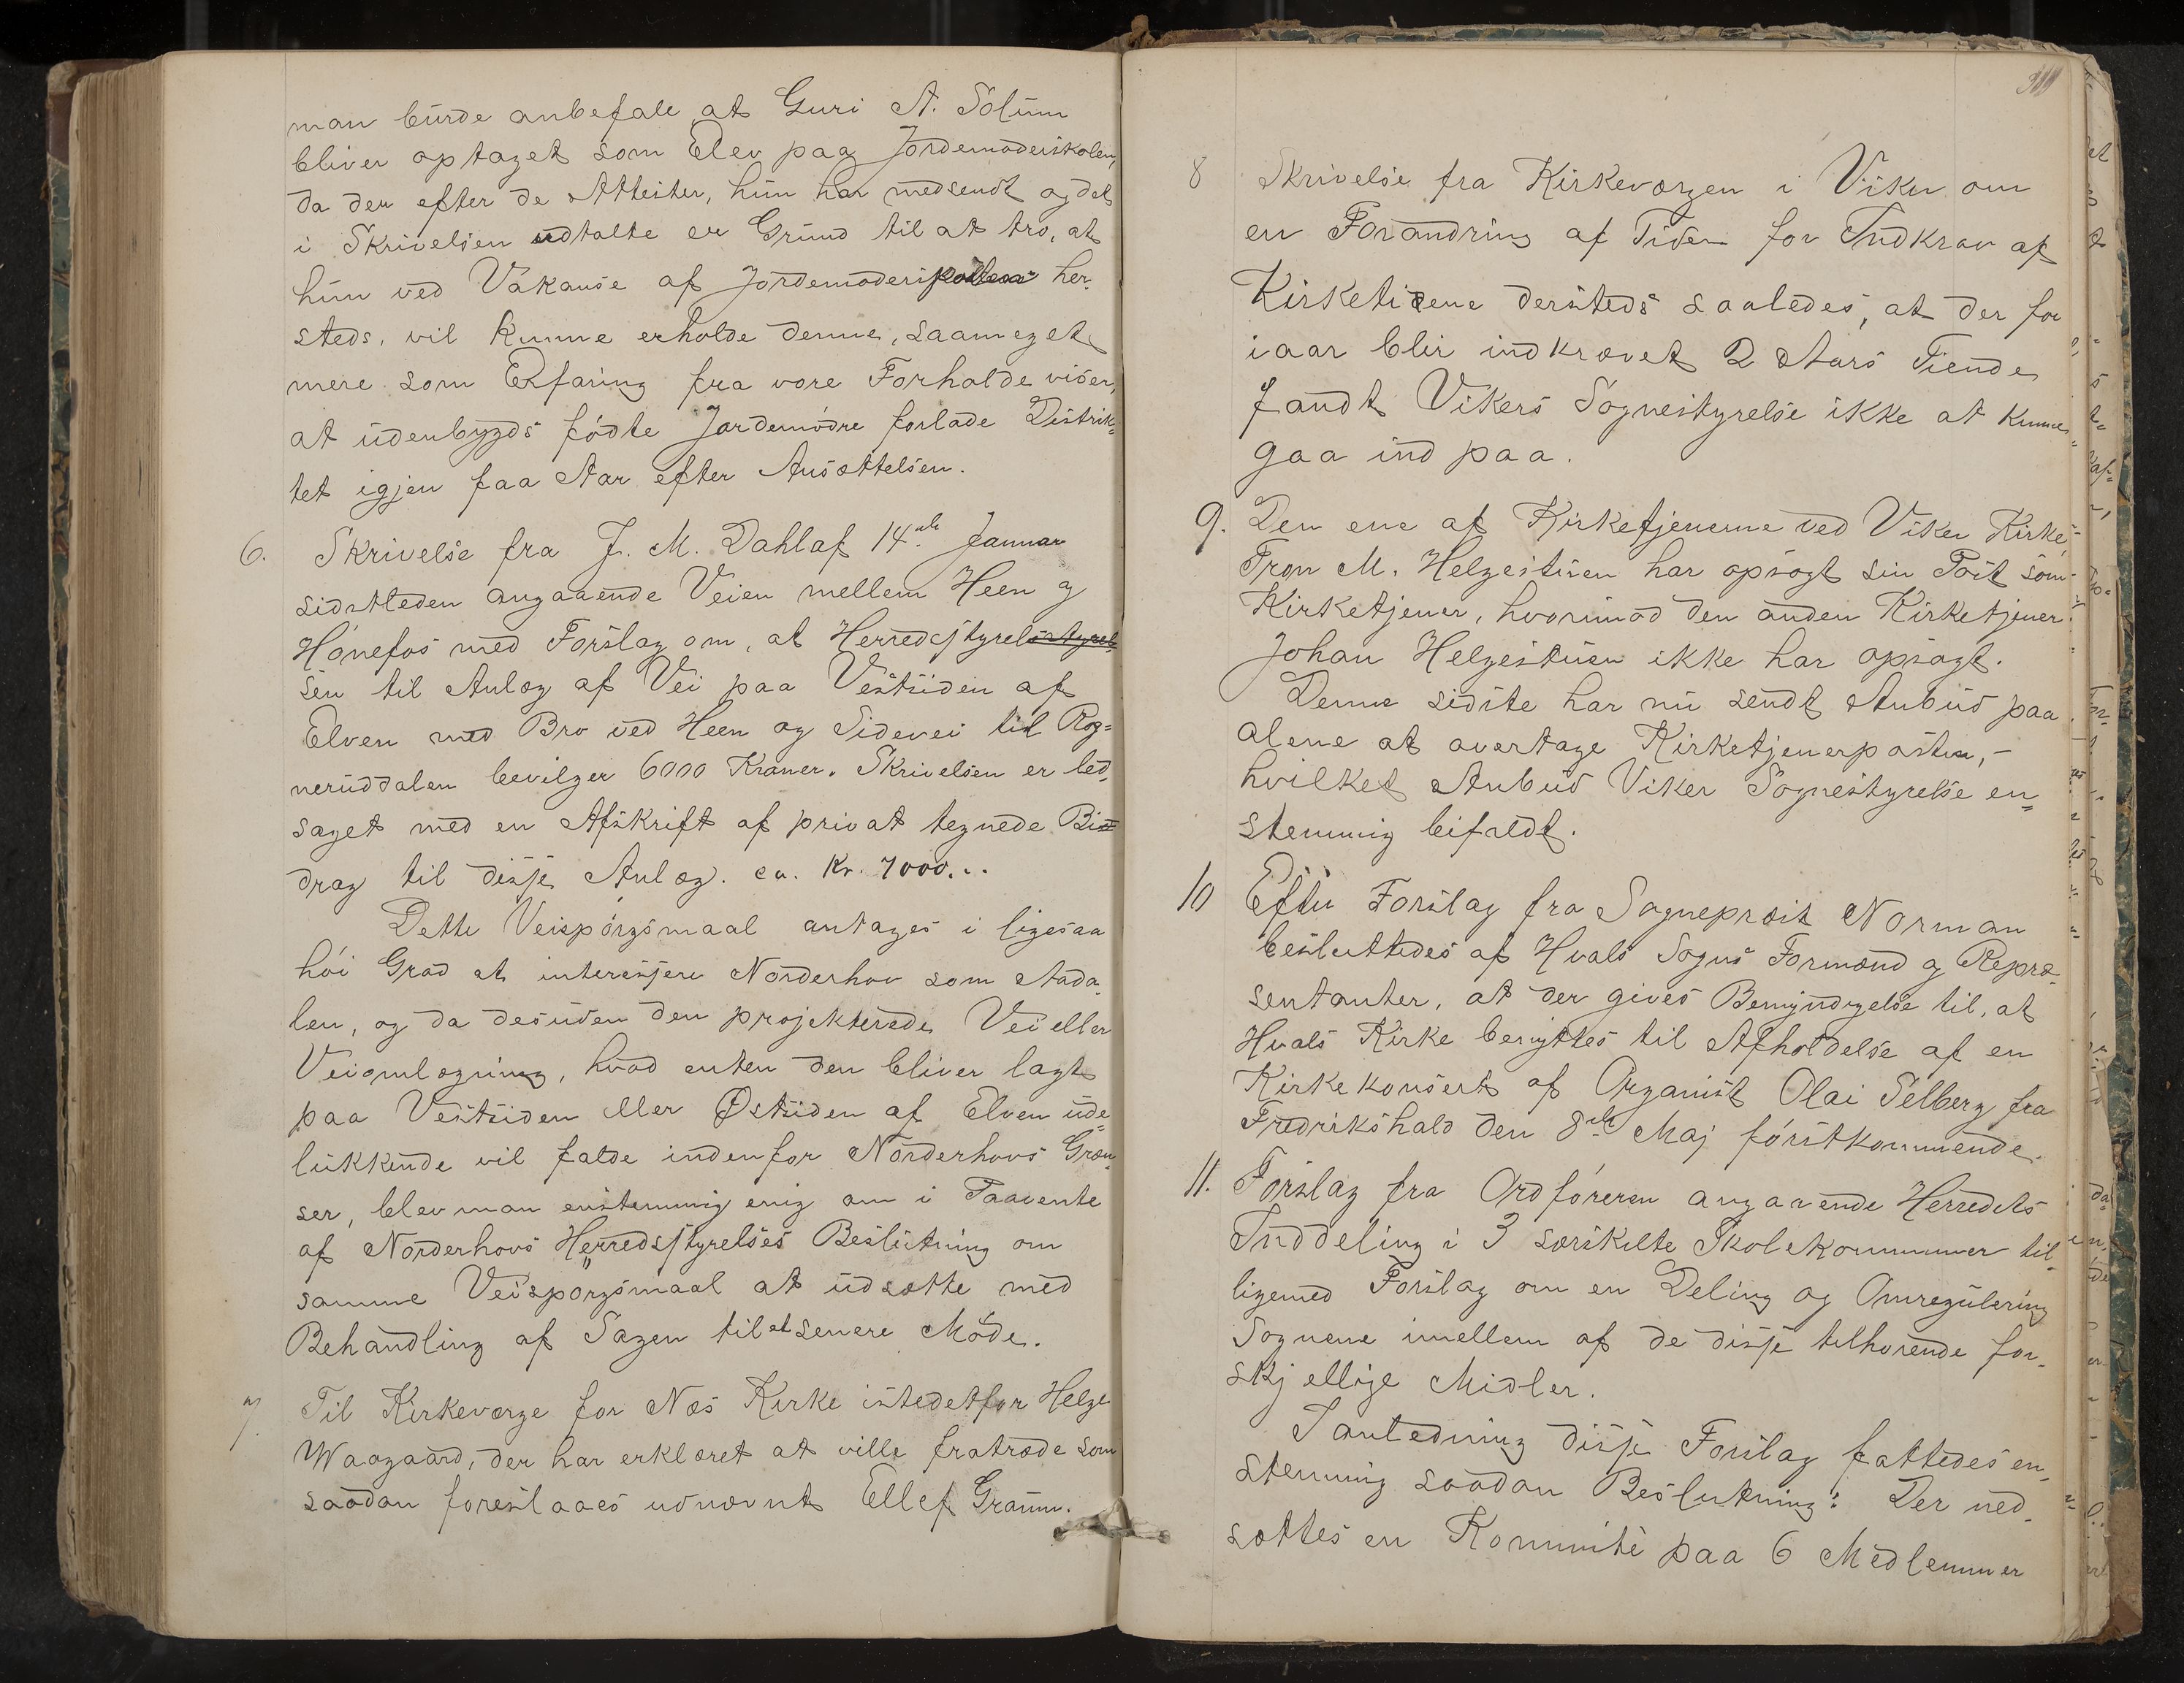 man burde anbefale at Guri A. Solum
bliver optaget som Elev paa Jordemoderskolen,
da der efter de Attester, hun har medsendt og det
i Skrivelsen udtalte er Grund til at tro, at
hun ved Vakanse af Jordemoderposten her-
steds, vil kunne erholde denne, saameget
mere som Erfaring fra vore Forholde viser,
at udenbygds fødte Jordemødre forlade Distrik-
tet igjen faa Aar efter Ansættelsen.
6. Skrivelse fra J. M. Dahl af 14de Januar
sidstleden angaaende Veien mellem Heen og
Hønefos med Forslag om, at Herredsstyrel
sen til Anlæg af Vei paa Vestsiden af
Elven med Bro ved Heen og Sidevei til Rog=
neruddalen bevilger 6000 Kroner. Skrivelsen er led-
saget med en Afskrift af privat tegnede Bi=
drag til disse Anlæg. ca. Kr. 7000...
Dette Veispørgsmaal antages i ligesaa
høi Grad at interessere Norderhov som Aada-
len, og da desuden den projekterede Vei eller
Veiomlægning, hvad enten den bliver lagt
paa Vestsiden eller Østsiden af Elven ude-
lukkende vil falde indenfor Norderhovs Græn-
ser, blev man enstemmig enig om i Paavente
af Norderhovs Herredsstyrelses Beslutning om
samme Veispørgsmaal at udsætte med
Behandling af Sagen til et senere Møde.
7. Til Kirkeværge for Næs Kirke istedetfor Helge
Waagaard, der har erklæret at ville fratræde som
saadan foreslaaes udnævnt Ellef Gramm.
311
8 Skrivelse fra Kirkeværgen i Viker om
en Forandring af Tiden for Indkrav af
Kirketiende dersteds saaledes, at der for
iaar blir indkrævet 2 Aars Tiende
fandt Vikers Sognestyrelse ikke at kunne
gaa ind paa.
9. Den ene af Kirketjenerne ved Viker Kirke,
Tron M. Helgestuen har opsagt sin Post som
Kirketjener, hvorimod den anden Kirketjener
Johan Helgestuen ikke har opsagt.
Denne sidste har nu sendt Anbud paa
alene at overtage Kirketjenerposten, -
hvilket Anbud Viker Sognestyrelse en=
stemmig bifaldt.
10 Efter Forslag fra Sogneprest Norman
besluttedes af Hvals Sogns Formænd og Repræ-
sentanter, at der gives Bemyndigelse til, at
Hvals Kirke benyttes til Afholdelse af en
Kirkekonsert af Organist Olai Selberg fra
Fredrikshald den 8de Maj førstkommende.
11. Forslag fra Ordføreren angaaende Herredets
Inddeling i 3 særskilte Skolekommuner til-
ligemed Forslag om en Deling og Omregulering
Sognene imellem af de disse tilhørende for-
skjellige Midler.
I anledning disse Forslag fattedes en-
stemmig saadan Beslutning: Der ned-
sættes en Kommité paa 6 Medlemmer